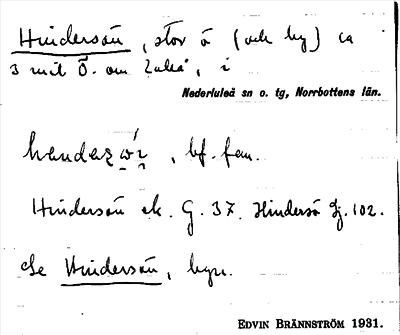 Hindersön, stor ö (och by) ca
3 mil Ö. om Luleå, i
Nederluleå sn o. tg, Norrbottens län.
bf. fan.
Hindersön ek. G. 37. Hindersö Jj. 102.
Se Hindersön, byn.
EDVIN BRÄNNSTRÖM 1931.